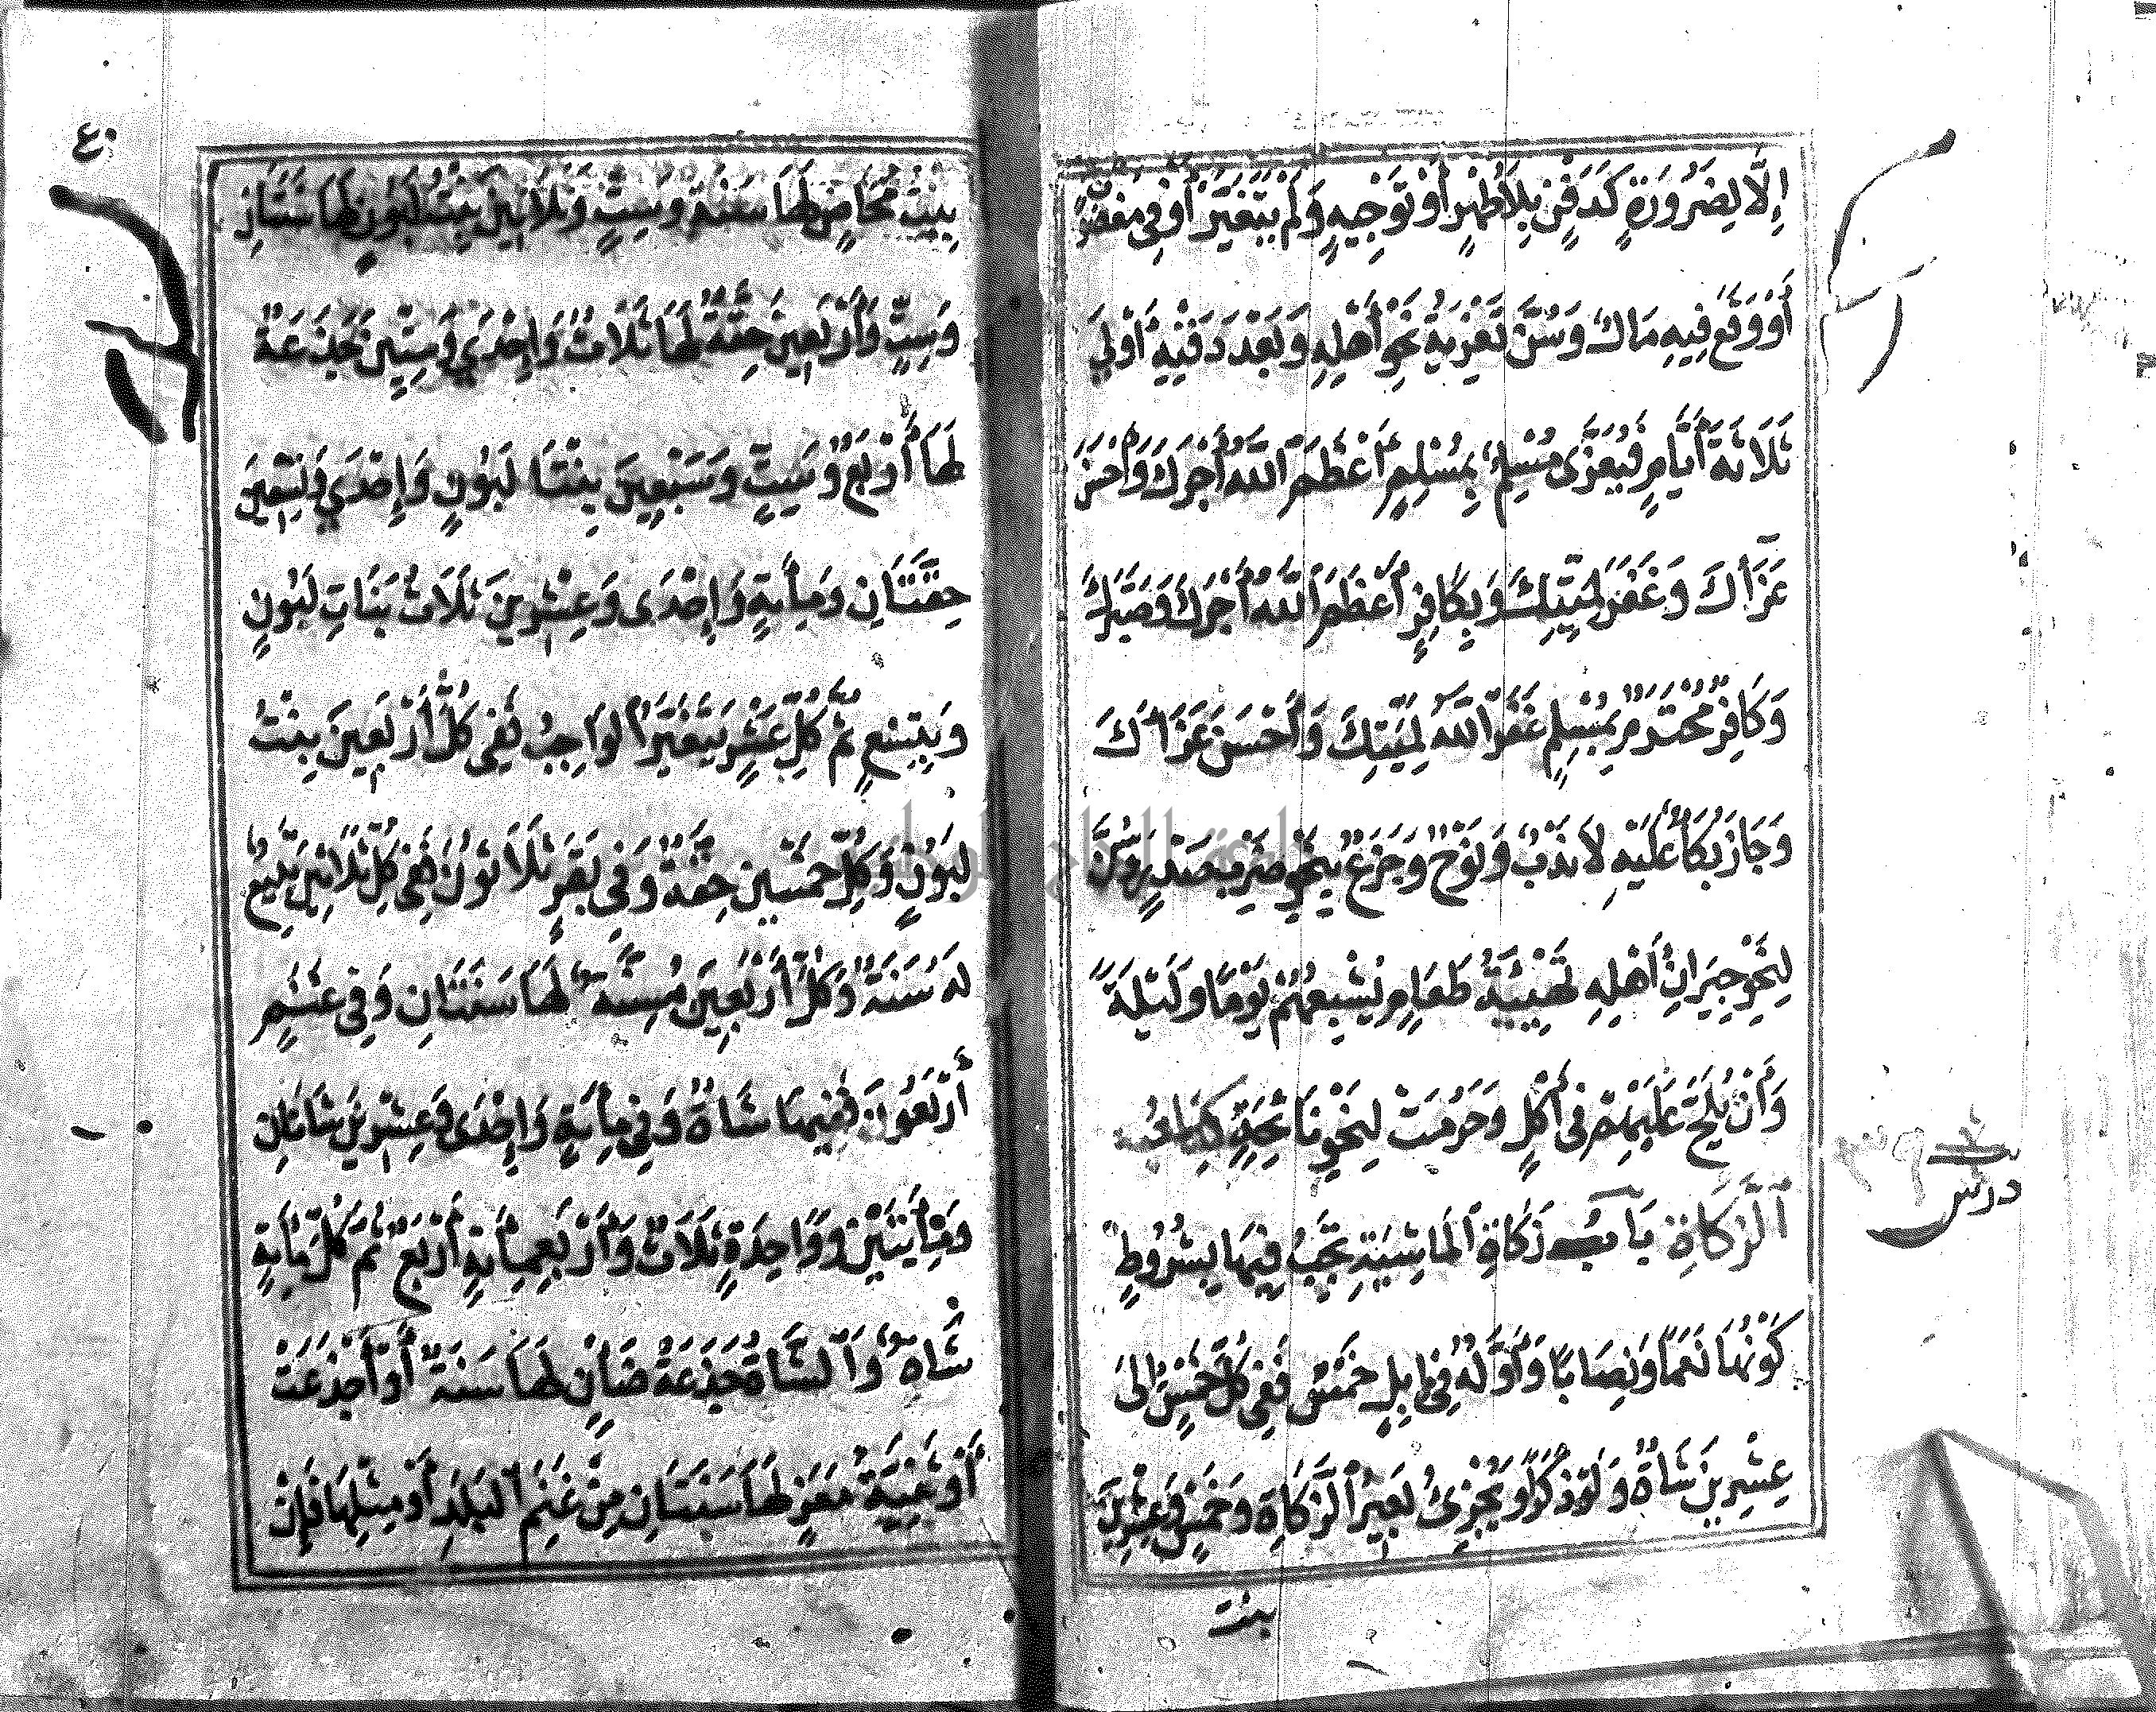 إِلَّا لِضَرُورَةٍ كَدَفْنٍ بِلَا طُهْرٍ أَوْ تَوْجِيهٍ وَلَمْ يَتَغَيَّرْ أَوْ فِي مَغْصُوبٍ
أَوْ وَقَعَ فِيهِ مَالٌ وَسُنَّ تَعْزِيَةُ نَحْوِ أَهْلِهِ وَبَعْدَ دَفْنِهِ أَوْلَى
ثَلَاثَةَ أَيَّامٍ فَيُعَزَّى مُسْلِمٌ بِمُسْلِمٍ أَعْظَمَ اللَّهُ أَجْرَكَ وَأَحْسَنَ
عَزَاءَكَ وَغَفَرَ لِمَيِّتِكَ وَبِكَافِرٍ أَعْظَمَ اللَّهُ أَجْرَكَ وَصَبَّرَكَ
وَكَافِرٌ مُحْتَرَمٌ بِمُسْلِمٍ غَفَرَ اللَّهُ لِمَيِّتِكَ وَأَحْسَنَ عَزَاءَكَ
وَجَازَ بُكَاءٌ عَلَيْهِ لَا نَدْبٌ وَنَوْحٌ وَجَزَعٌ بِنَحْوِ ضَرْبِ صَدْرٍ وَسُنَّ
لِنَحْوِ جِيرَانِ أَهْلِهِ تَهْيِئَةُ طَعَامٍ يُشْبِعُهُمْ يَوْمًا وَلَيْلَةً
وَأَنْ يُلَحَّ عَلَيْهِمْ فِي أَكْلٍ وَحَرُمَتْ لِنَحْوِ نَائِحَةٍ كِتَابُ
الزَّكَاةِ بَابُ زَكَاةِ الْمَاشِيَةِ تَجِبُ فِيهَا بِشُرُوطٍ
كَوْنُهَا نَعَمًا وَنِصَابًا وَأَوَّلُهُ فِي إِبِلٍ خَمْسٌ فَفِي كُلِّ خَمْسٍ إِلَى
عِشْرِينَ شَاةٌ وَلَوْ ذَكَرًا وَيُجْزِئُ بَعِيرُ الزَّكَاةِ وَخَمْسٍ وَعِشْرِينَ
بنت
درس
٤٠
بِنْتُ مَخَاضٍ لَهَا سَنَةٌ وَسِتٍّ وَثَلَاثِينَ بِنْتُ لَبُونٍ لَهَا سَنَتَانِ
وَسِتٍّ وَأَرْبَعِينَ حِقَّةٌ لَهَا ثَلَاثٌ وَإِحْدَى وَسِتِّينَ جَذَعَةٌ
لَهَا أَرْبَعٌ وَسِتٍّ وَسَبْعِينَ بِنْتَا لَبُونٍ وَإِحْدَى وَتِسْعِينَ
حِقَّتَانِ وَمِائَةٍ وَإِحْدَى وَعِشْرِينَ ثَلَاثُ بَنَاتِ لَبُونٍ
وَبِتِسْعٍ ثُمَّ كُلِّ عَشْرٍ يَتَغَيَّرُ الْوَاجِبُ فَفِي كُلِّ أَرْبَعِينَ بِنْتُ
لَبُونٍ وَكُلِّ خَمْسِينَ حِقَّةٌ وَفِي بَقَرٍ ثَلَاثُونَ فَفِي كُلِّ ثَلَاثِينَ تَبِيعٌ
لَهُ سَنَةٌ وَكُلِّ أَرْبَعِينَ مُسِنَّةٌ لَهَا سَنَتَانِ وَفِي غَنَمٍ
أَرْبَعُونَ فَفِيهَا شَاةٌ وَفِي مِائَةٍ وَإِحْدَى وَعِشْرِينَ شَاتَانِ
وَمِائَتَيْنِ وَوَاحِدَةٍ ثَلَاثٌ وَأَرْبَعِمِائَةٍ أَرْبَعٌ ثُمَّ كُلِّ مِائَةٍ
شَاةٌ وَالشَّاةُ جَذَعَةُ ضَأْنٍ لَهَا سَنَةٌ أَوْ أَجْذَعَتْ
أَوْ ثَنِيَّةُ مَعْزٍ لَهَا سَنَتَانِ مِنْ غَنَمِ الْبَلَدِ أَوْ مِثْلِهَا فَإِنْ